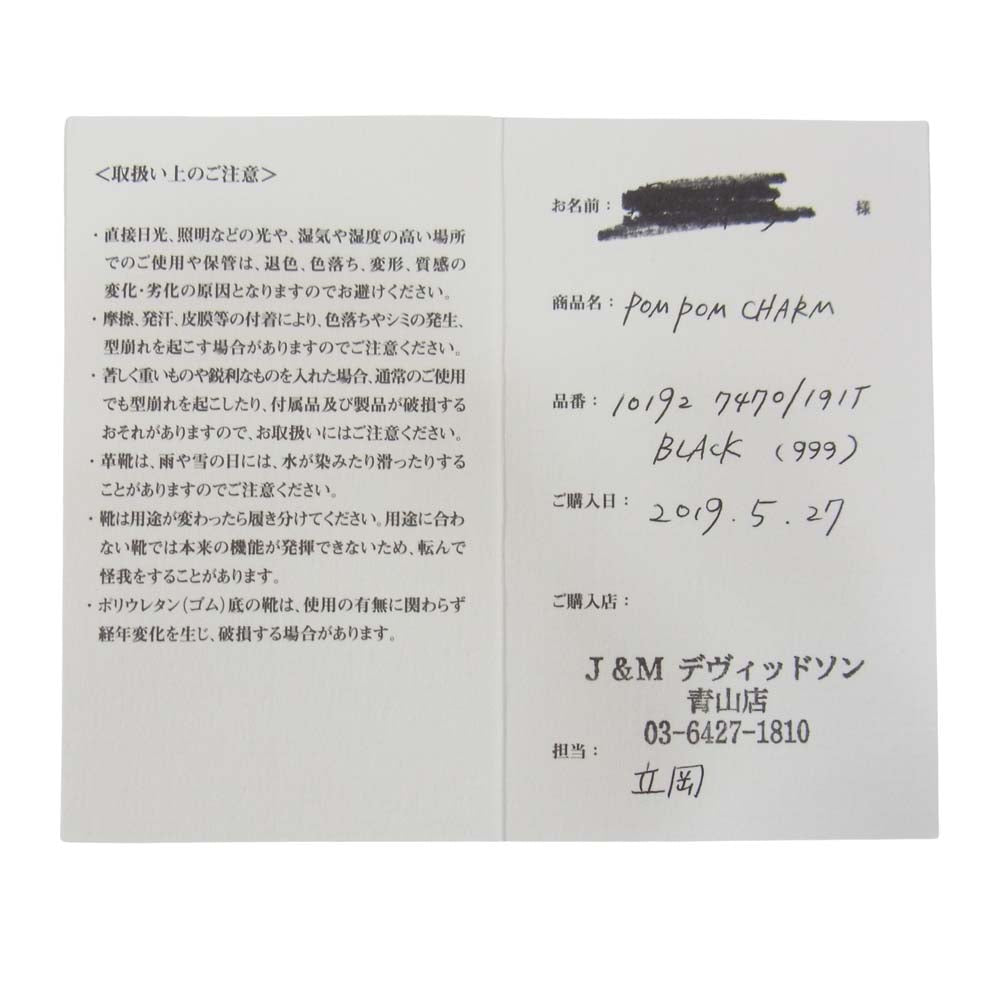 ＜取扱い上のご注意＞
・直接日光、照明などの光や、湿気や湿度の高い場所
でのご使用や保管は、退色、色落ち、変形、質感の
変化・劣化の原因となりますのでお避けください。
・摩擦、発汗、皮膜等の付着により、色落ちやシミの発生、
型崩れを起こす場合がありますのでご注意ください。
・著しく重いものや鋭利なものを入れた場合、通常のご使用
でも型崩れを起こしたり、付属品及び製品が破損する
おそれがありますので、お取扱いにはご注意ください。
・革靴は、雨や雪の日には、水が染みたり滑ったりする
ことがありますのでご注意ください。
・靴は用途が変わったら履き分けてください。用途に合わ
ない靴では本来の機能が発揮できないため、転んで
怪我をすることがあります。
・ポリウレタン（ゴム）底の靴は、使用の有無に関わらず
経年変化を生じ、破損する場合があります。
お名前： 様
商品名： POMPOM CHARM
品番： 10192 7470/191T
BLACK (999)
ご購入日： 2019.5.27
ご購入店：
J&M デヴィッドソン
青山店
03-6427-1810
担当：
立岡